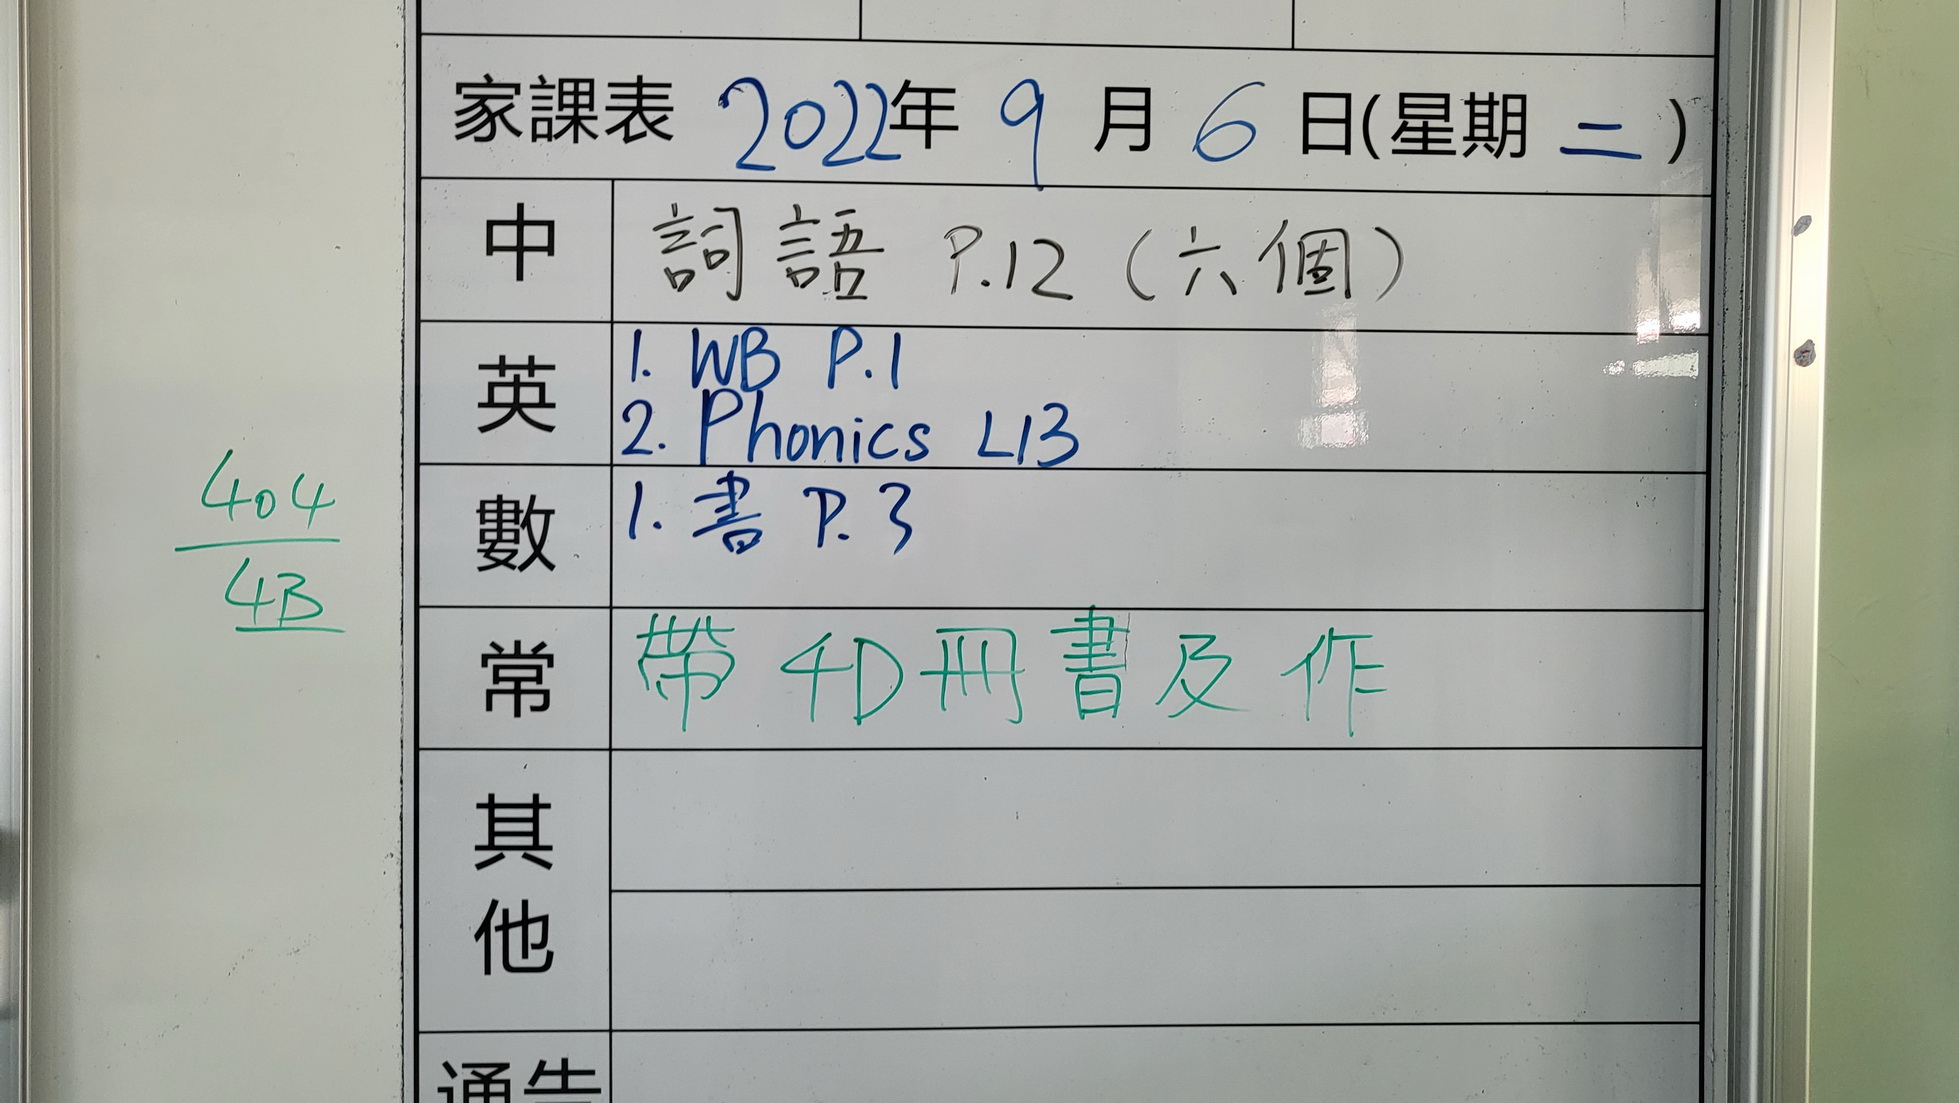 家課表 2022年 9 月 6 日(星期 二 )
中 詞語 P.12 (六個)
英 1. WB P.1
2. Phonics L13
數 1. 書 P.3
常 帶 4D冊書及作
其他
通告
404
4B